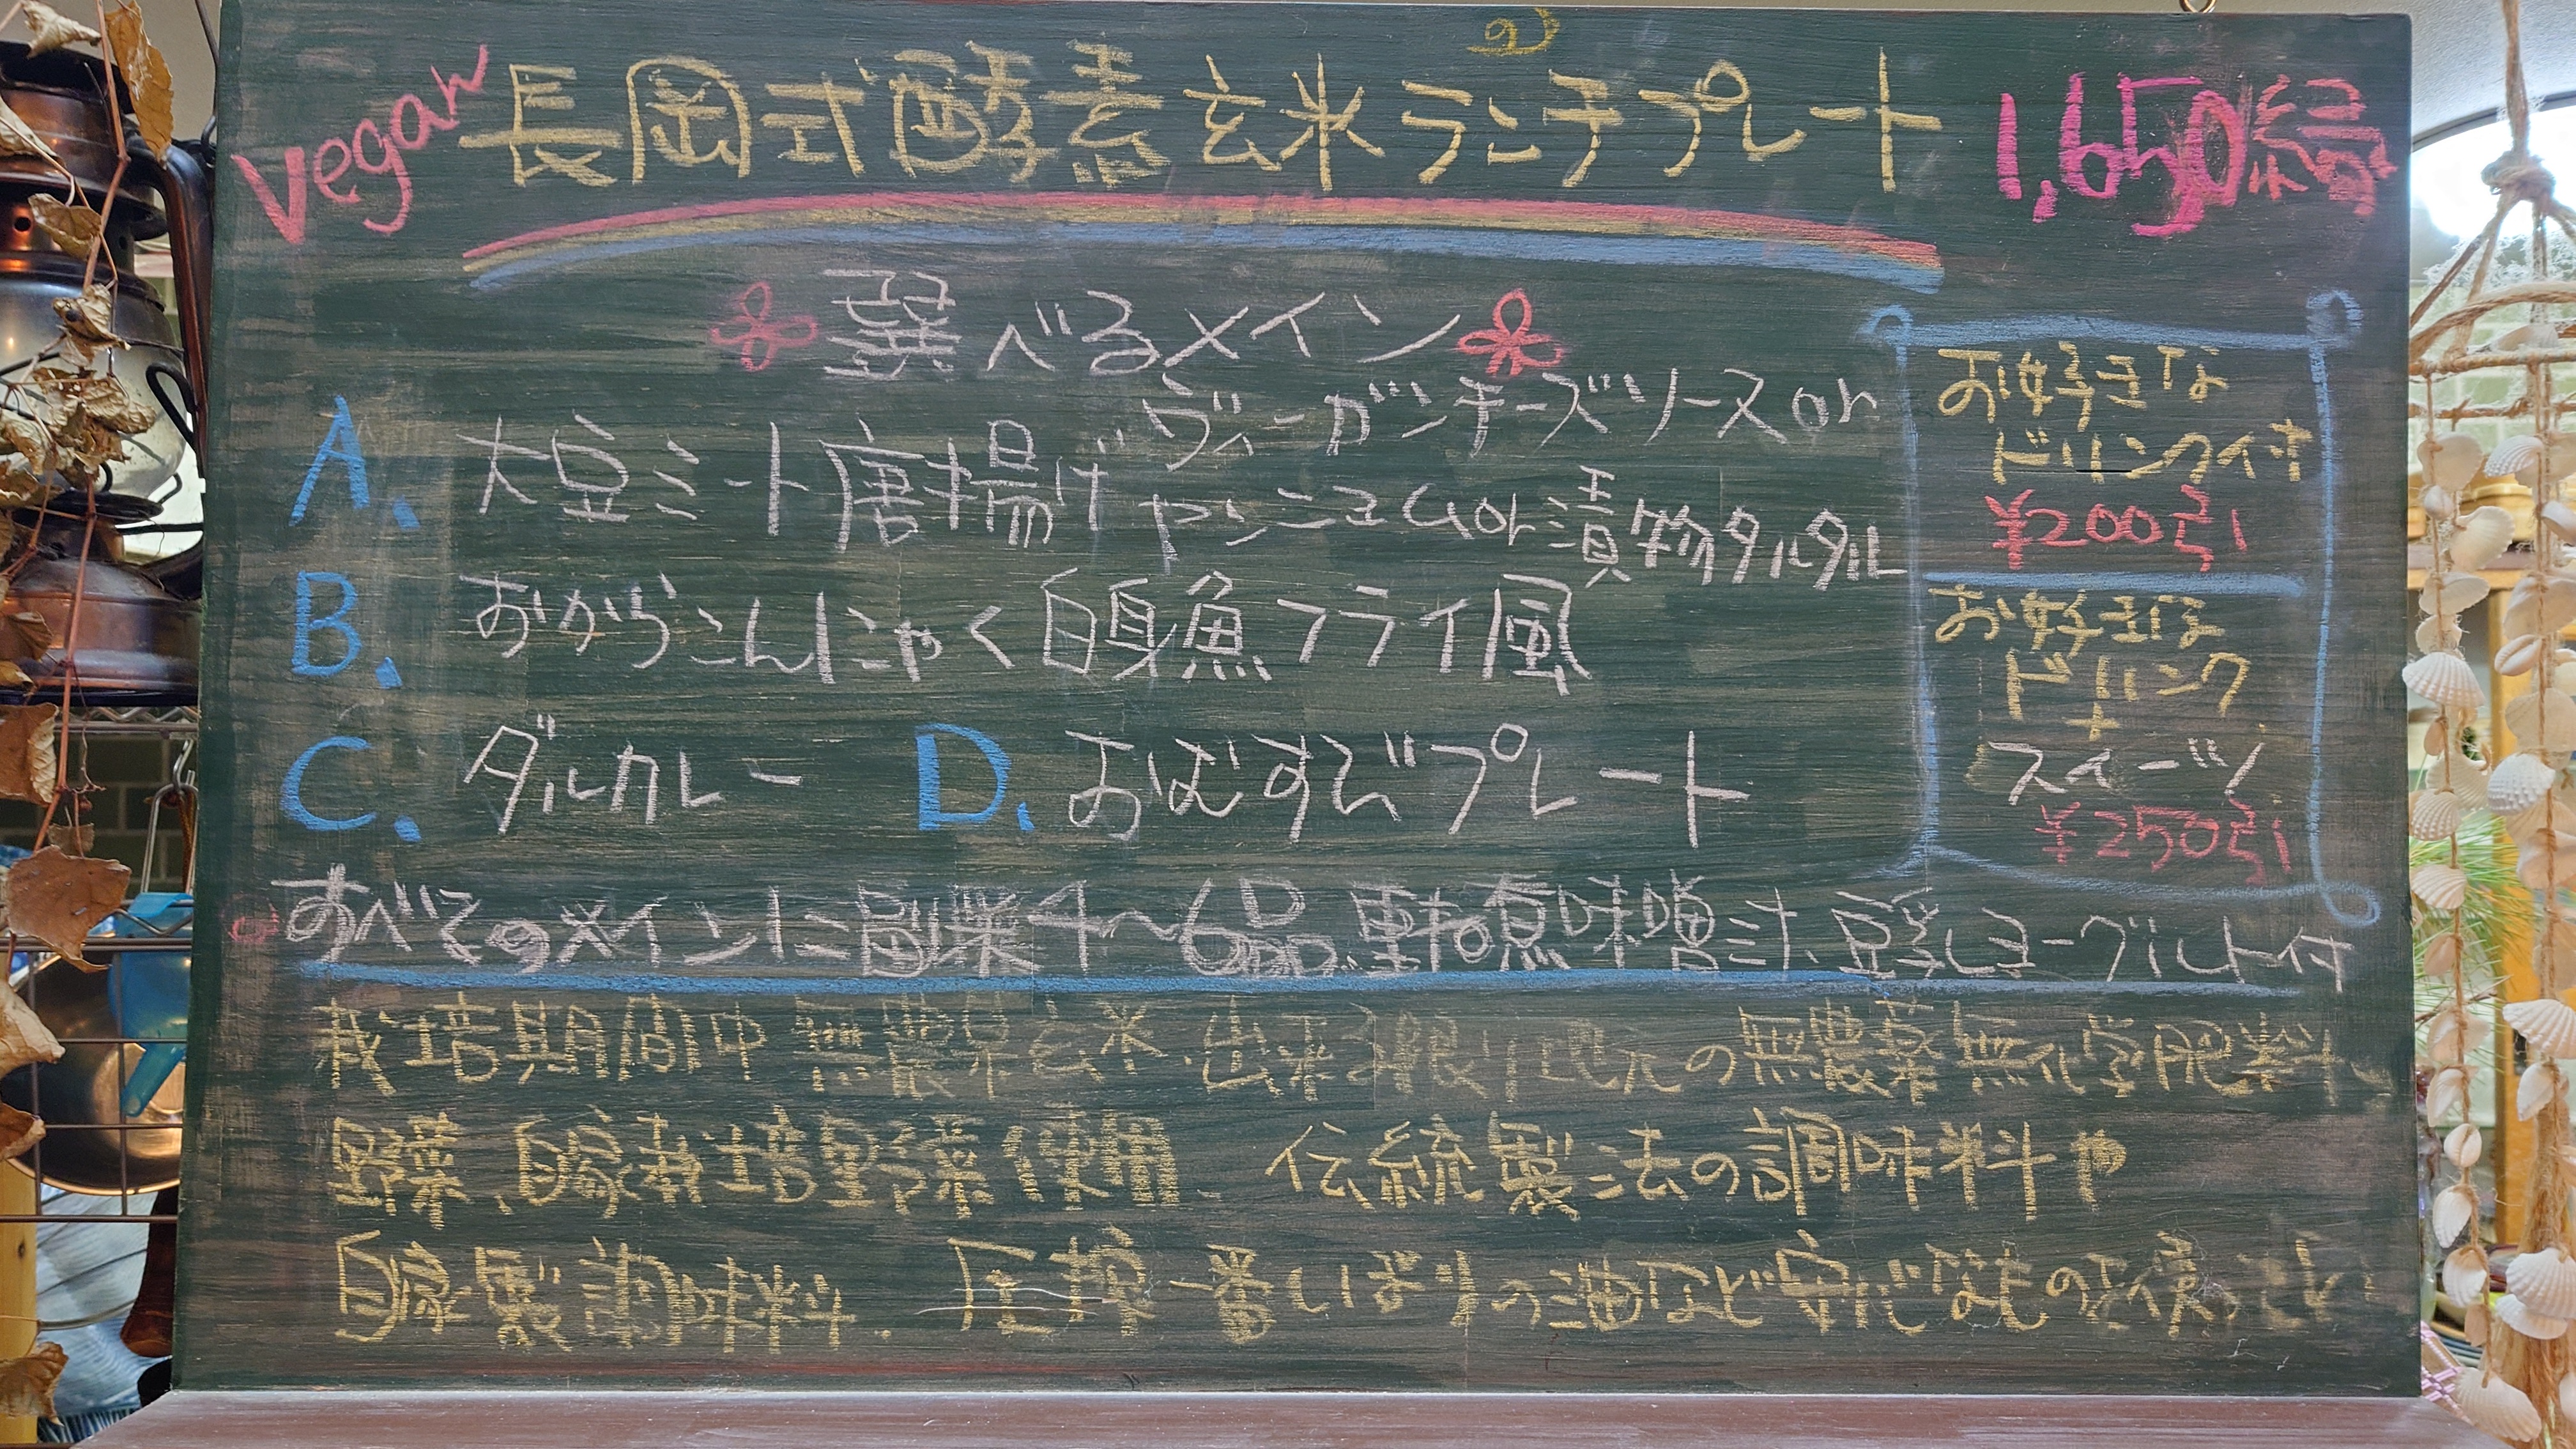 Vegan 長岡式酵素玄米ランチプレート 1,650
選べるメイン
A. 大豆ミート唐揚げ ヴィーガンチーズソース or
ヤンニョム or 漬物タルタル
B. おからこんにゃく白身魚フライ風
C. ダルカレー D. おむすびプレート
すべてのメインに副菜4〜6品、車麩味噌汁、豆乳ヨーグルト付
お好きな
ドリンク付
¥200引
お好きな
ドリンク
+
スイーツ
¥250引
栽培期間中無農薬玄米、出来る限り地元の無農薬無化学肥料、
野菜、自家栽培野菜使用、伝統製法の調味料や
自家製調味料、圧搾一番しぼりの油など安心なもの